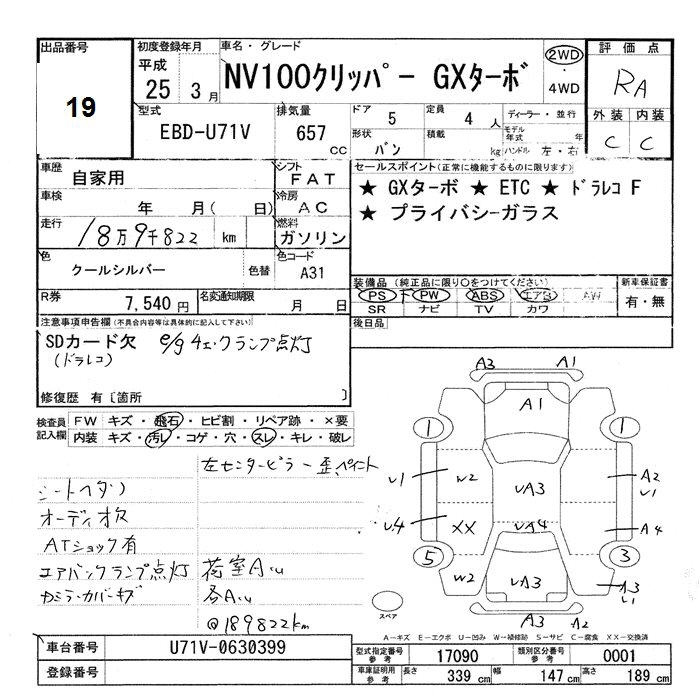 出品番号
19
初度登録年月
平成
25 3 月
車名・グレード
NV100クリッパー GXターボ
2WD
・
4WD
評価点
RA
外装 内装
C C
型式
EBD-U71V
排気量
657 cc
ドア 5
定員 4 人
ディーラー・並行
形状 バン
積載 kg
モデル年式 年
ハンドル 左・右
車歴 自家用
シフト FAT
車検 年 月( 日)
冷房 AC
走行 18万9千822 km
燃料 ガソリン
色 クールシルバー 色替
色コード A31
R券 7,540 円
名変通知期限 月 日
セールスポイント(正常に機能するものに限ります)
★ GXターボ ★ ETC ★ ドラレコ F
★ プライバシーガラス
装備品 (純正品に限り○をつけてください)
PS PW ABS エアB AW
SR ナビ TV カワ
新車保証書
有・無
後日品
注意事項申告欄(不具合内容等は具体的に記入して下さい)
SDカード欠 e/g チェックランプ点灯
(ドラレコ)
修復歴 有〔箇所 〕
検査員記入欄
FW キズ・飛石・ヒビ割・リペア跡・×要
内装 キズ・汚レ・コゲ・穴・スレ・キレ・破レ
左センターピラー歪ペイント
シートヘタリ
オーディオ欠
ATショック有
エアバックランプ点灯
荷室AU
各AU
@189822km
A3 A1
A1
1 1
U1 W2 UA3 A2 U1
U4 XX UA4 A4
5 3
W2 UA3 A3 U1
A3 A2
スペア
A-キズ E-エクボ U-凹み W-補修跡 S-サビ C-腐食 XX-交換済
車台番号 U71V-0630399
登録番号
型式指定番号参考 17090
類別区分番号参考 0001
車庫証明用参考
長さ 339 cm
幅 147 cm
高さ 189 cm